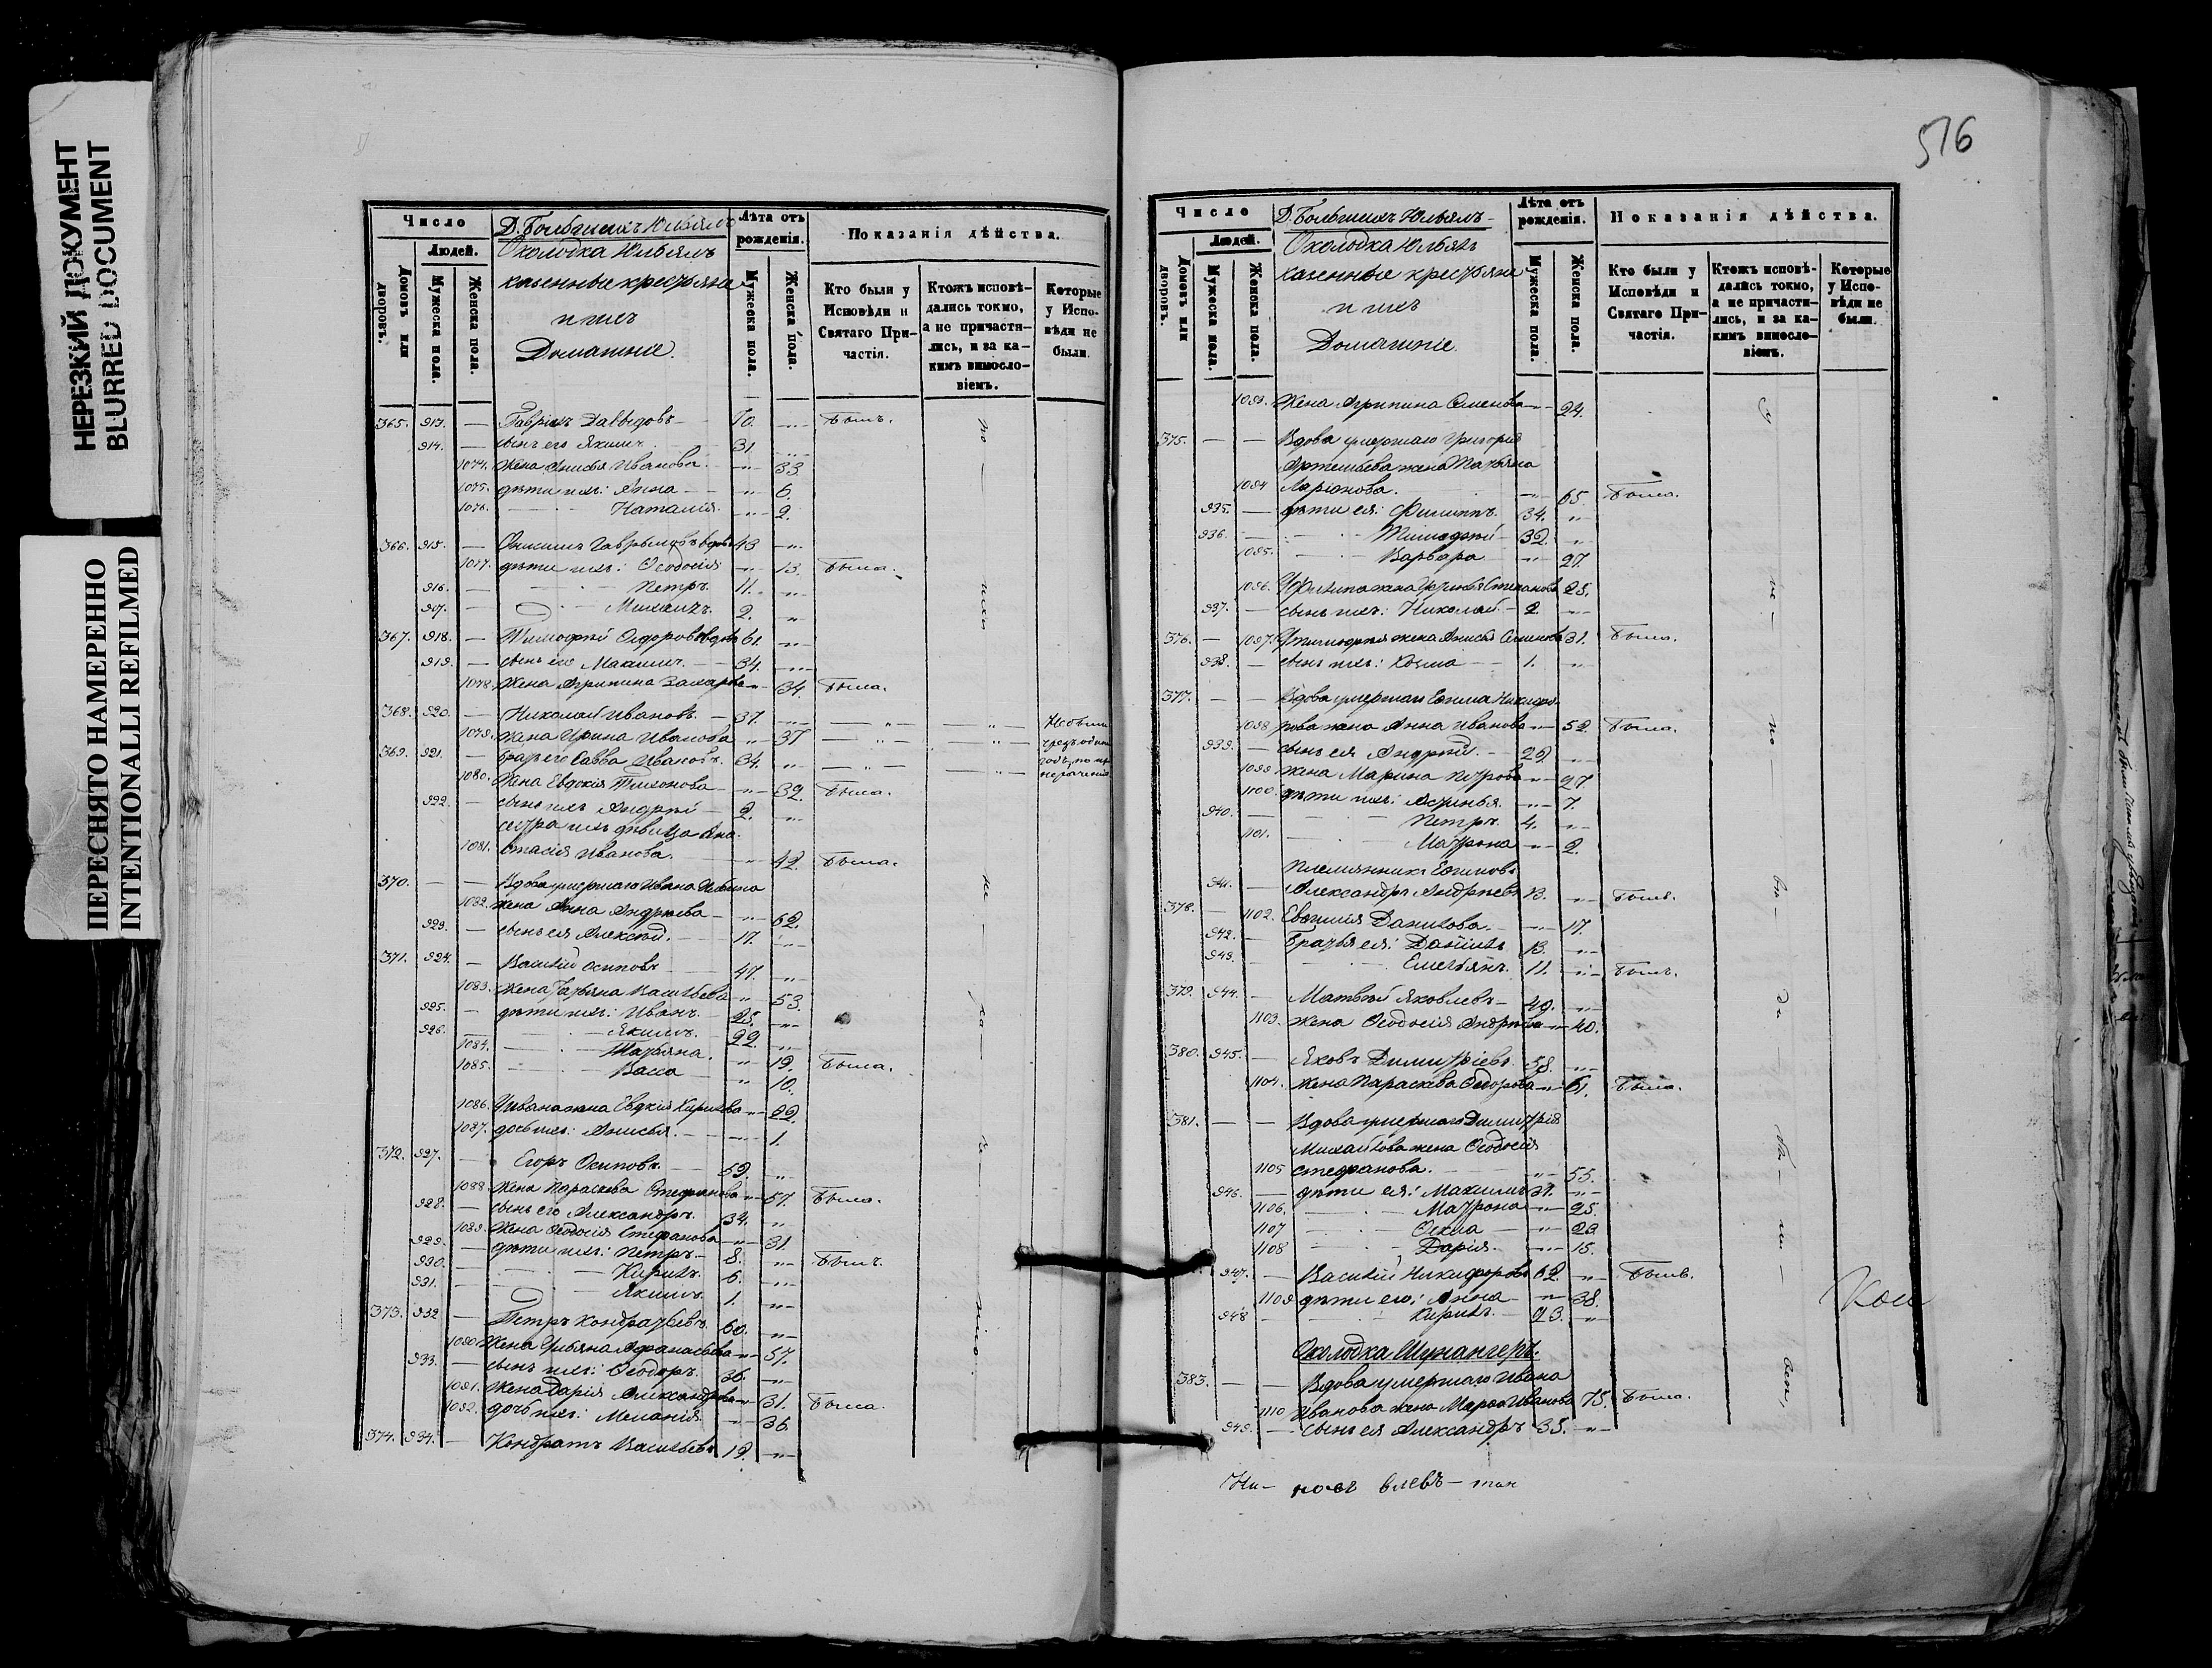 НЕРЕЗКИЙ ДОКУМЕНТ
BLURRED DOCUMENT
ПЕРЕСНЯТО НАМЕРЕННО
INTENTIONALLI REFILMED
Число
Людей.
Домовъ или дворовъ.
Мужеска пола.
Женска пола.
Д. Большихъ Юльялъ
Околодка Юльялъ
казенные крестьяне
и ихъ
Домашніе.
Лѣта отъ рожденія.
Мужеска пола.
Женска пола.
Показанія дѣйства.
Кто были у Исповѣди и Святаго Причастія.
Ктожъ исповѣдались токмо, а не причастились, и за какимъ винословіемъ.
Которые у Исповѣди не были.
365. 913. — Гавріилъ Давыдовъ — 70. Былъ.
914. — сынъ его Якимъ 31
1074. жена Анисья Иванова. 33
1075. дѣти ихъ: Анна 6.
1076. Наталія. 2.
366. 915. — 43
1077. дѣти ихъ: Ѳеодосія 13. Была.
916. Петръ. 11.
Михаилъ. 2.
367. 918. — Тимоѳей Ѳедоровъ вдовъ 61.
919. — сынъ его Максимъ. 34.
1078. Жена Агрипина Захарова 34. Была.
368. 920. — Николай Ивановъ. — 37.
1079. Жена Ирина Иванова 37
369. 921. — братъ его Савва Ивановъ. 34.
1080. Жена Евдокія Тихонова 32. Была.
922. — сынъ ихъ Андрей 2.
сестра ихъ дѣвица Ана-
1081. стасія Иванова. 42. Была.
370. — — Вдова умершаго Ивана
1082. жена Анна Андреева 62.
923. — сынъ ея Алексѣй. 17.
371. 924. — Василій Осиповъ 47.
1083. жена Татьяна Васильева 53.
925. — дѣти ихъ: Иванъ. 25.
926. Якимъ. 22.
1084. Татьяна. 19. Была.
1085. Васса 10.
1086. У Ивана жена Евдокія Кирилова 22.
1087. дочь ихъ: Анисья. 1.
372. 927. — Егоръ Осиповъ. 59.
1088. Жена Параскева Стефанова 57. Была.
928. — сынъ его Александръ. 34.
1089. Жена Ѳеодосія Стефанова 31.
929. — дѣти ихъ: Петръ. 8.
930. Кирилъ. 6. Былъ.
931. Якимъ. 1.
373. 932 — Петръ Кондратьевъ. 60.
1090. Жена Ульяна Афанасьева 57.
933. — сынъ ихъ: Ѳеодоръ. 36.
1091. Жена Дарія Александрова 31. Была.
1092. дочь ихъ: Меланія. 36.
374. 934. — Кондратъ Васильевъ 19.
576
Число
Людей.
Домовъ или дворовъ.
Мужеска пола.
Женска пола.
Д. Большихъ Юльялъ
Околодка Юльялъ
казенные крестьяне
и ихъ
Домашніе.
Лѣта отъ рожденія.
Мужеска пола.
Женска пола.
Показанія дѣйства.
Кто были у Исповѣди и Святаго Причастія.
Ктожъ исповѣдались токмо, а не причастились, и за какимъ винословіемъ.
Которые у Исповѣди не были.
1093. Жена Агрипина Семенова 24.
375. — — Вдова умершаго Григорія
Артемьева жена Татьяна
1094 Ларіонова. 65. Была.
935. — дѣти ея: Филиппъ. 34.
936. — Тимоѳей 32.
1095. Варвара 27.
1096. У Филипа жена Степанова 25.
937. — сынъ ихъ: Николай. 2
376. — 1097. У Тимоѳея жена Анисья Семенова 31. Была.
938. — сынъ ихъ: Козма 1.
377. — — Вдова умершаго Ефима Никифо-
1098 рова жена Анна Иванова 52. Была.
939. — сынъ ея Андрей. 29.
1099 Жена Марина Петрова 27.
1100. дѣти ихъ: 7.
940. Петръ. 4.
1101. Матрона 2.
Племянникъ Ефимовъ
941. Александръ Андреевъ 13. Былъ.
378. — 1102. Евфимія Данилова. 17.
942. — Братья ея: Даніилъ 13.
943. Емельянъ. 11. Былъ.
379. 944. — Матвей Яковлевъ 49.
1103. Жена Ѳеодосія Андреева 40.
380. 945. — Яковъ Димитріевъ. 58.
1104. жена Параскева Ѳеодорова 61. Была.
381. — — Вдова умершаго Димитрія
Михайлова жена Ѳеодосія
1105 Стефанова. 55.
946. — дѣти ея: Максимъ 31.
1106. Матрона 25.
1107 Ѳекла 23.
1108 Дарія. 15.
947. — Василій Никифоровъ 62. Былъ.
1109 дѣти его: Анна 38.
948 Кирилъ. 23.
Околодка Шунангеръ.
383. — — Вдова умершаго Ивана
1110 Иванова жена Марѳа Иванова 75. Была.
949. — сынъ ея Александръ 33.